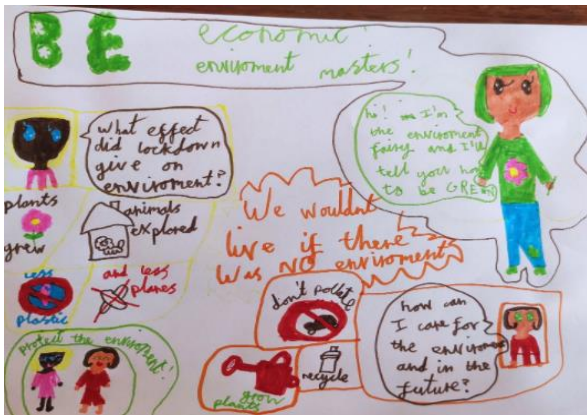 BE economic
enviroment masters!
hi! I'm
the enviroment
fairy and I'll
tell you how
to be GREEN
What effect
did lockdown
give on
enviroment?
plants
grew
animals
explored
less
plastic
and less
planes
We wouldn't
live if there
was NO enviroment
don't pollute
grow
plants
recycle
how can
I care for
the enviroment
and in the
future?
Protect the enviroment!